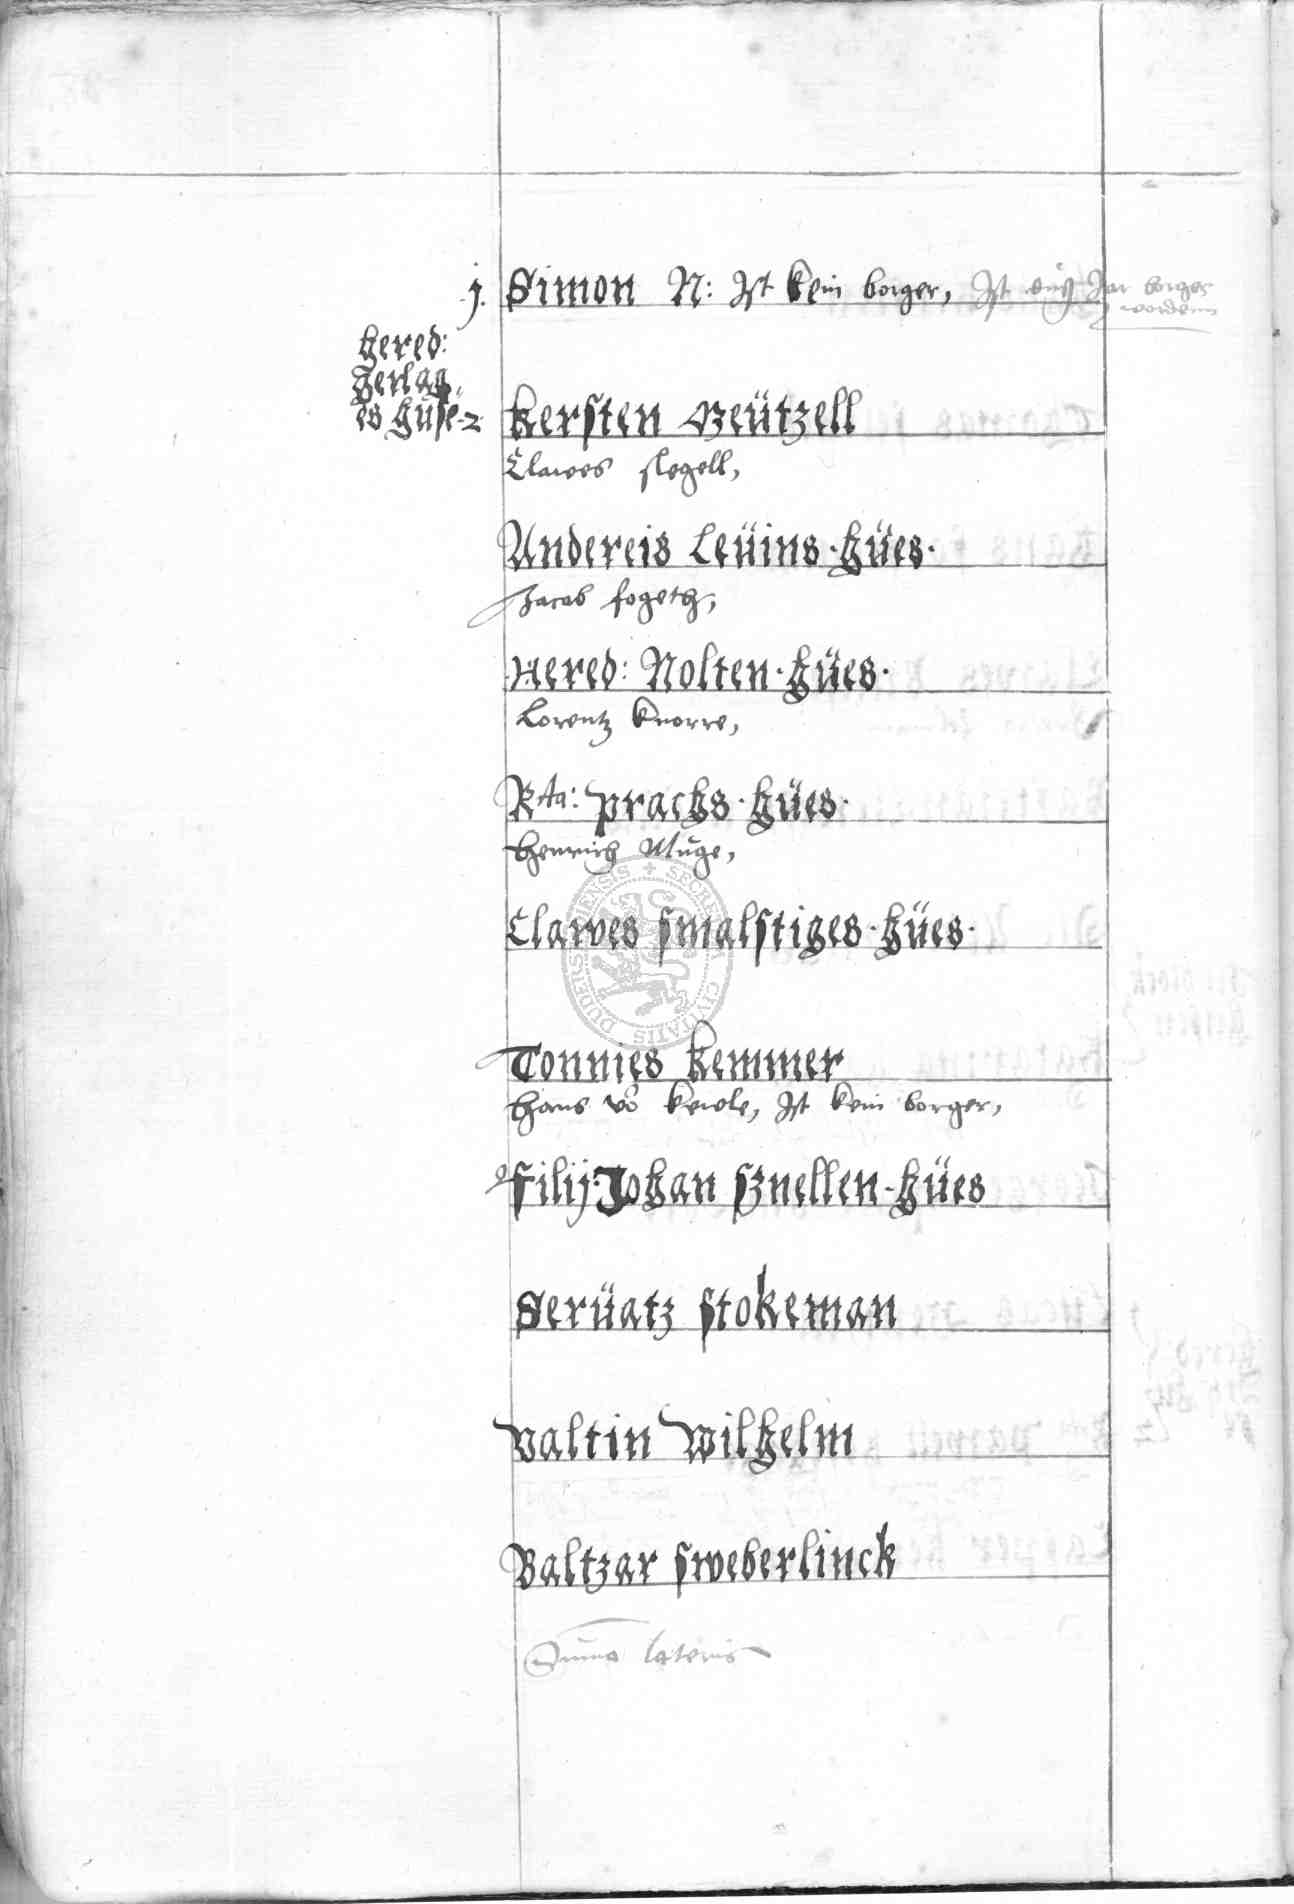 j. Simon N: Ist kein borger, Ist Jar borger
wordenn
Hered:
Gerlag
es huse 2 Kersten Weützell
Clawes slegell,
Andereis Leüins·hües·
Jacob fogeth,
Hered: Nolten·hües·
Lorentz Knorre,
Rta: prachs·hües·
Henrich Muge,
Clawes smalstiges·hües·
Tonnies Kemmer
Hans vo Keuole, Ist kein borger,
filij Johan sznellen-hües
Serüatz stokeman
Valtin Wilhelm
Baltzar sweberlinck
Suma lateris
SECRET CIVITATIS DUDERSTADIENSIS